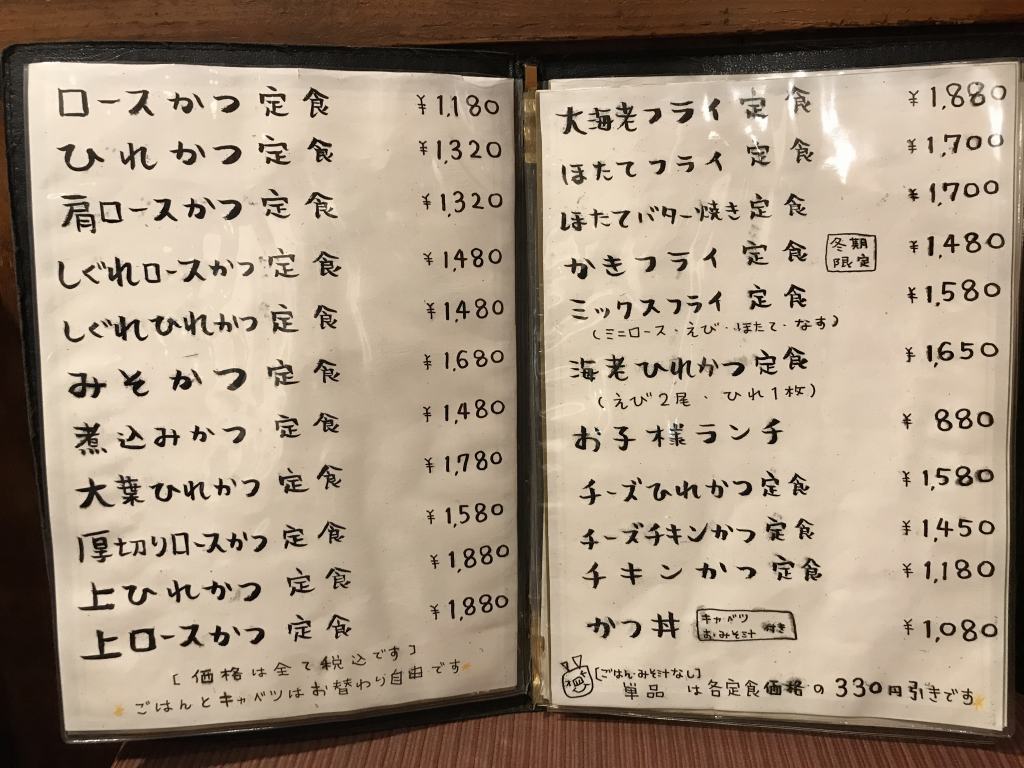 ロースかつ定食 ¥1,180
ひれかつ定食 ¥1,320
肩ロースかつ定食 ¥1,320
しぐれロースかつ定食 ¥1,480
しぐれひれかつ定食 ¥1,480
みそかつ定食 ¥1,680
煮込みかつ定食 ¥1,480
大葉ひれかつ定食 ¥1,780
厚切りロースかつ定食 ¥1,580
上ひれかつ定食 ¥1,880
上ロースかつ定食 ¥1,880
[価格は全て税込です]
ごはんとキャベツはお替わり自由です
大海老フライ定食 ¥1,880
ほたてフライ定食 ¥1,700
ほたてバター焼き定食 ¥1,700
かきフライ定食 冬期限定 ¥1,480
ミックスフライ定食 ¥1,580
(ミニロース・えび・ほたて・なす)
海老ひれかつ定食 ¥1,650
(えび2尾・ひれ1枚)
お子様ランチ ¥880
チーズひれかつ定食 ¥1,580
チーズチキンかつ定食 ¥1,450
チキンかつ定食 ¥1,180
かつ丼 キャベツおみそ汁付き ¥1,080
[ごはん・みそ汁なし]
単品は各定食価格の330円引きです